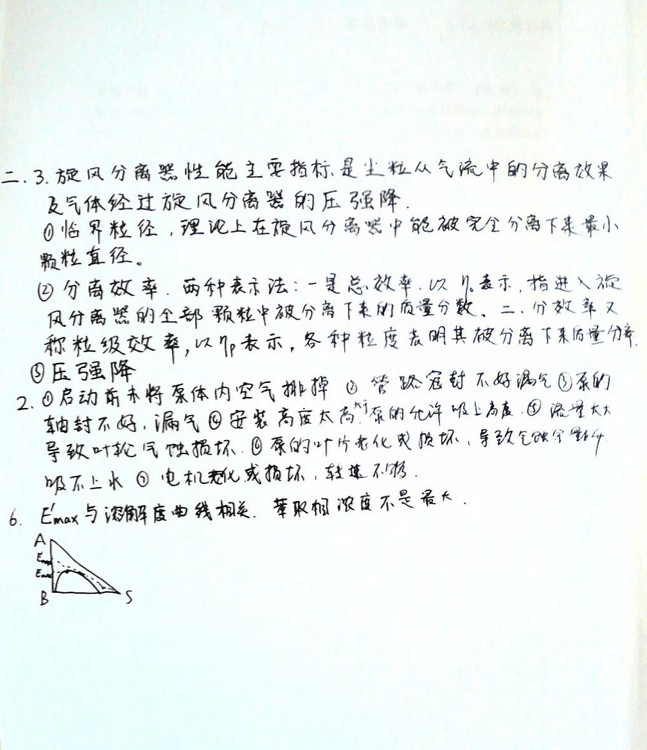 二. 3. 旋风分离器性能主要指标是尘粒从气流中的分离效果
及气体经过旋风分离器的压强降.
①临界粒径,理论上在旋风分离器中能被完全分离下来最小
颗粒直径。
②分离效率.两种表示法:一是总效率.以η。表示,指进入旋
风分离器的全部颗粒中被分离下来的质量分数、二.分效率又
称粒级效率,以ηp表示,各种粒度表明其被分离下来质量分率.
③压强降
2. ①启动前未将泵体内空气排掉 ② 管路密封不好漏气 ③泵的
轴封不好,漏气 ④安装高度太高,大于泵的允许吸上高度.⑤流量太大
导致叶轮气蚀损坏.⑥泵的叶片老化或损坏,导致气蚀
吸不上水 ⑦电机老化或损坏,转速不够.
6. E'max与溶解度曲线相关.萃取相浓度不是最大.
A
E'max
Emax
B S